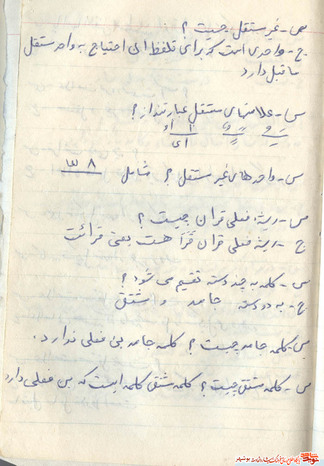 س - غیر مستقل چیست ؟
ج - واحدی است که برای تلفظ الی احتیاج به واحد مستقل
ماقبل دارد
س - علامتهای مستقل عبارتند از ؟
ا او
ای
س - واحدهای غیر مستقل ؟ شامل ۸
س - ریشه فعلی قران چیست ؟
ج - ریشه فعلی قران قَرَأ هست یعنی قرائت
س - کلمه به چند دسته تقسیم می شود ؟
ج - به دو دسته جامد و مشتق
س - کلمه جامد چیست ؟ کلمه جامد بن فعلی ندارد .
س - کلمه مشتق چیست ؟ کلمه مشتق کلمه ایست که بن فعلی دارد